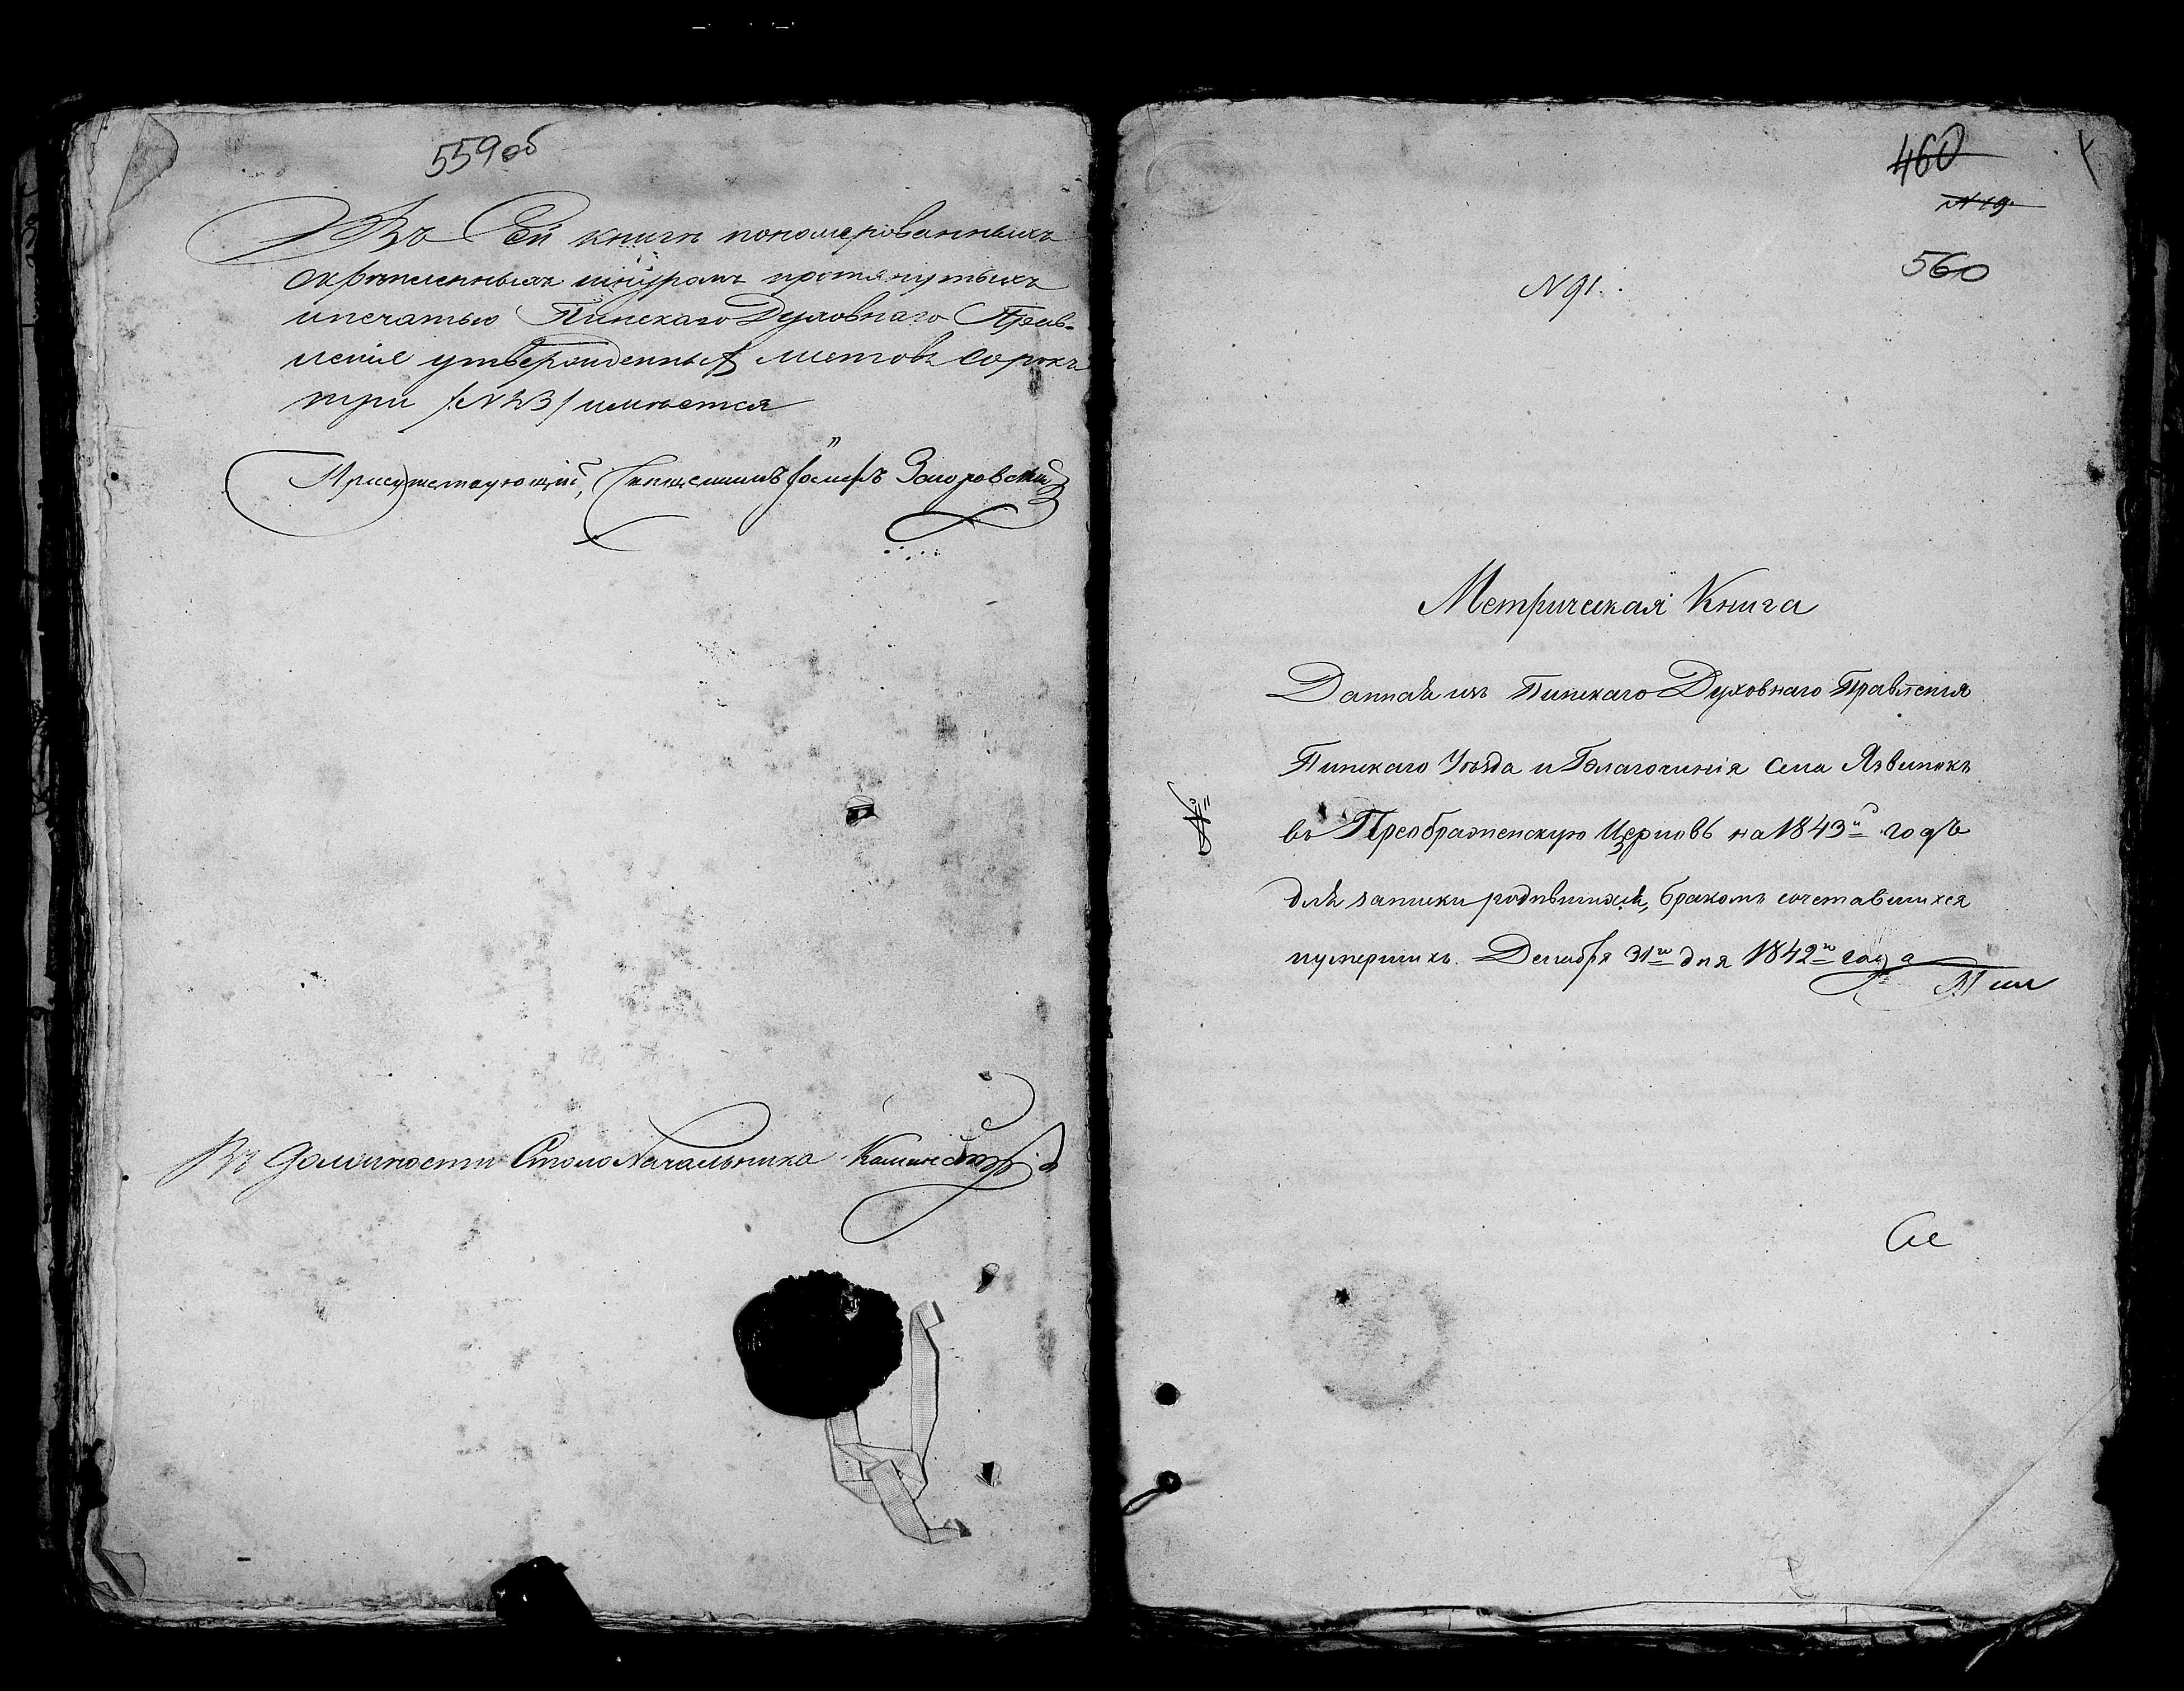 559 об
Въ Сей книге пономерованныхъ
скрѣпленныхъ шнуромъ протянутыхъ
и печатью Пинскаго Духовнаго Прав-
ленія утвержденныхъ листовъ сорокъ
три /№ 43/ имѣется
Присутствующій, Священникъ Іосифъ
Въ должности Столоначальника
460
№ 19
560
№ 91.
Метрическая Книга
Данная изъ Пинскаго Духовнаго Правленія
Пинскаго Уѣзда и Благочинія села Язвинокъ
въ Преображенскую Церковь на 1843й годъ
для записки родившихся, бракомъ сочетавшихся
и умершихъ. Декабря 31го дня 1842го года
Пин
Ск